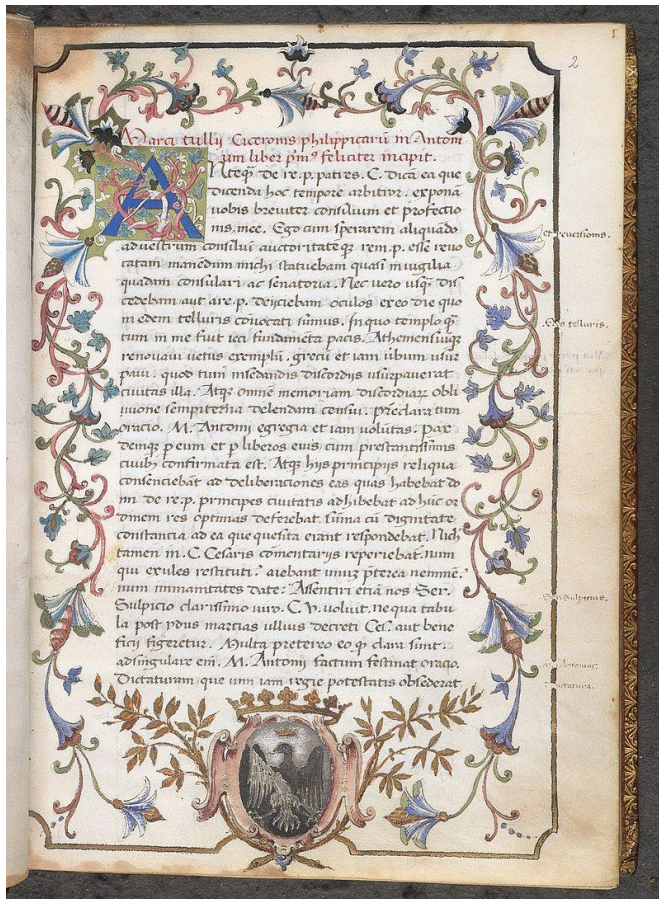 2
1
Marci tullij Ciceronis philippicarū in Antoni
um liber pīmꝰ feliciter incipit.
ANteqꝫ de re.p. patres. C. dicā ea que
dicenda hoc tempore arbitror. exponā
uobis breuiter consilium et profectio
nis mee. Ego cum sperarem aliquādo
ad uestrum consiliū auctoritateqꝫ rem.p. esse reuo
catam manēdum michi statuebam quasi in uigilia
quadam consulari ac senatoria. Nec uero usqꝫ dis
cedebam aut a re.p. deijciebam oculos ex eo die quo
in edem telluris conuocati sumus. In quo templo q̄
tum in me fuit ieci fundamēta pacis. Atheniensiūqꝫ
renouaui uetus exemplū. grecū et iam ūbum usur
paui. quod tum in sedandis discordijs usurpauerat
ciuitas illa. Atqꝫ omnē memoriam discordiaꝝ obli
uione sempiterna delendam censui. Preclara tum
oracio. M. Antonij egregia et iam uolūtas. pax
deniqꝫ p eum et p liberos eius cum prestantissimis
ciuibꝫ confirmata est. Atqꝫ hijs principijs reliqua
consenciebāt ad deliberaciones eas quas habebat do
mi de re.p. principes ciuitatis adhibebat ad hūc or
dinem res optimas deferebat. summa cū dignitate
constancia ad ea que quesita erant respondebat. Nich
tamen in. C. Cesaris comentarijs reperiebat. num
qui exules restituti? aiebant unuꝫ pterea neminē.
num immunitates date? Assentiri etiā nos Ser.
Sulpicio clarissimo uiro. C. V. uoluit. ne qua tabu
la post ydus marcias ullius decreti Ces. aut bene
ficij figeretur. Multa pretereo eo qꝫ clara sunt.
ad singulare em. M. Antonij factum festinat oracio.
Dictaturam, que uim iam regie potestatis obsederat
et reuersionis.
Edes telluris.
Ser. Sulpicius.
M. Antonius.
Dictatura.